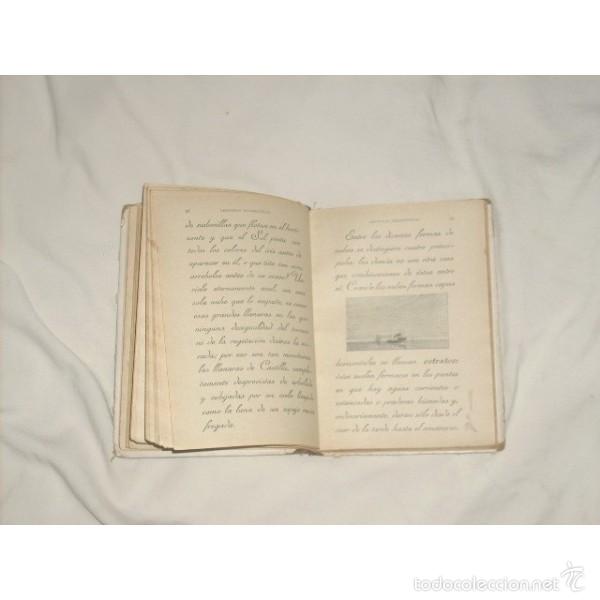 de nubecillas que flotan en el hori-
zonte y que el Sol pinta con
todos los colores del iris antes de
aparecer en él, o que tiñe con vivos
arreboles antes de su ocaso? Un
cielo eternamente azul, sin una
sola nube que lo empañe, es como
esas grandes llanuras en las que
ninguna desigualdad del terreno
ni de la vegetación distrae la mi-
rada; por eso son tan monótonas
las llanuras de Castilla, comple-
tamente desprovistas de arbolado
y cobijadas por un cielo limpio
como la luna de un espejo recién
fregado.
Entre las diversas formas de
nubes se distinguen cuatro princi-
pales; las demás no son otra cosa
que combinaciones de éstas entre
sí. Cuando las nubes forman capas
horizontales se llaman estratos;
éstas suelen formarse en los puntos
en que hay aguas corrientes o
estancadas o praderas húmedas y,
ordinariamente, duran sólo desde el
caer de la tarde hasta el amanecer.
todocoleccion.net